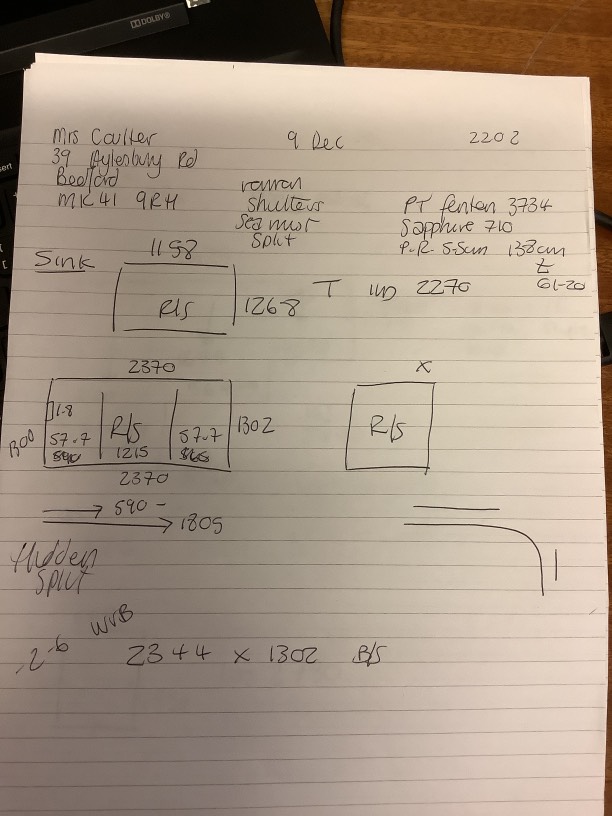 DOLBY®
Mrs Coulter
9 Dec
2202
39 Aylesbury Rd
Bedford
MK41 9RH
roman
shutters
Sea mist
Split
PT fenton 3734
Sapphire 710
P.R. S-Sun 138cm
61-20
Sink
1158
R/S
1268
T
2270
2370
1300
1.8
57.7
R/S
1215
57.7
1302
2370
X
R/S
590 -
1805
Hidden
Split
WVB
-2-6
2344 x 1302 B/S